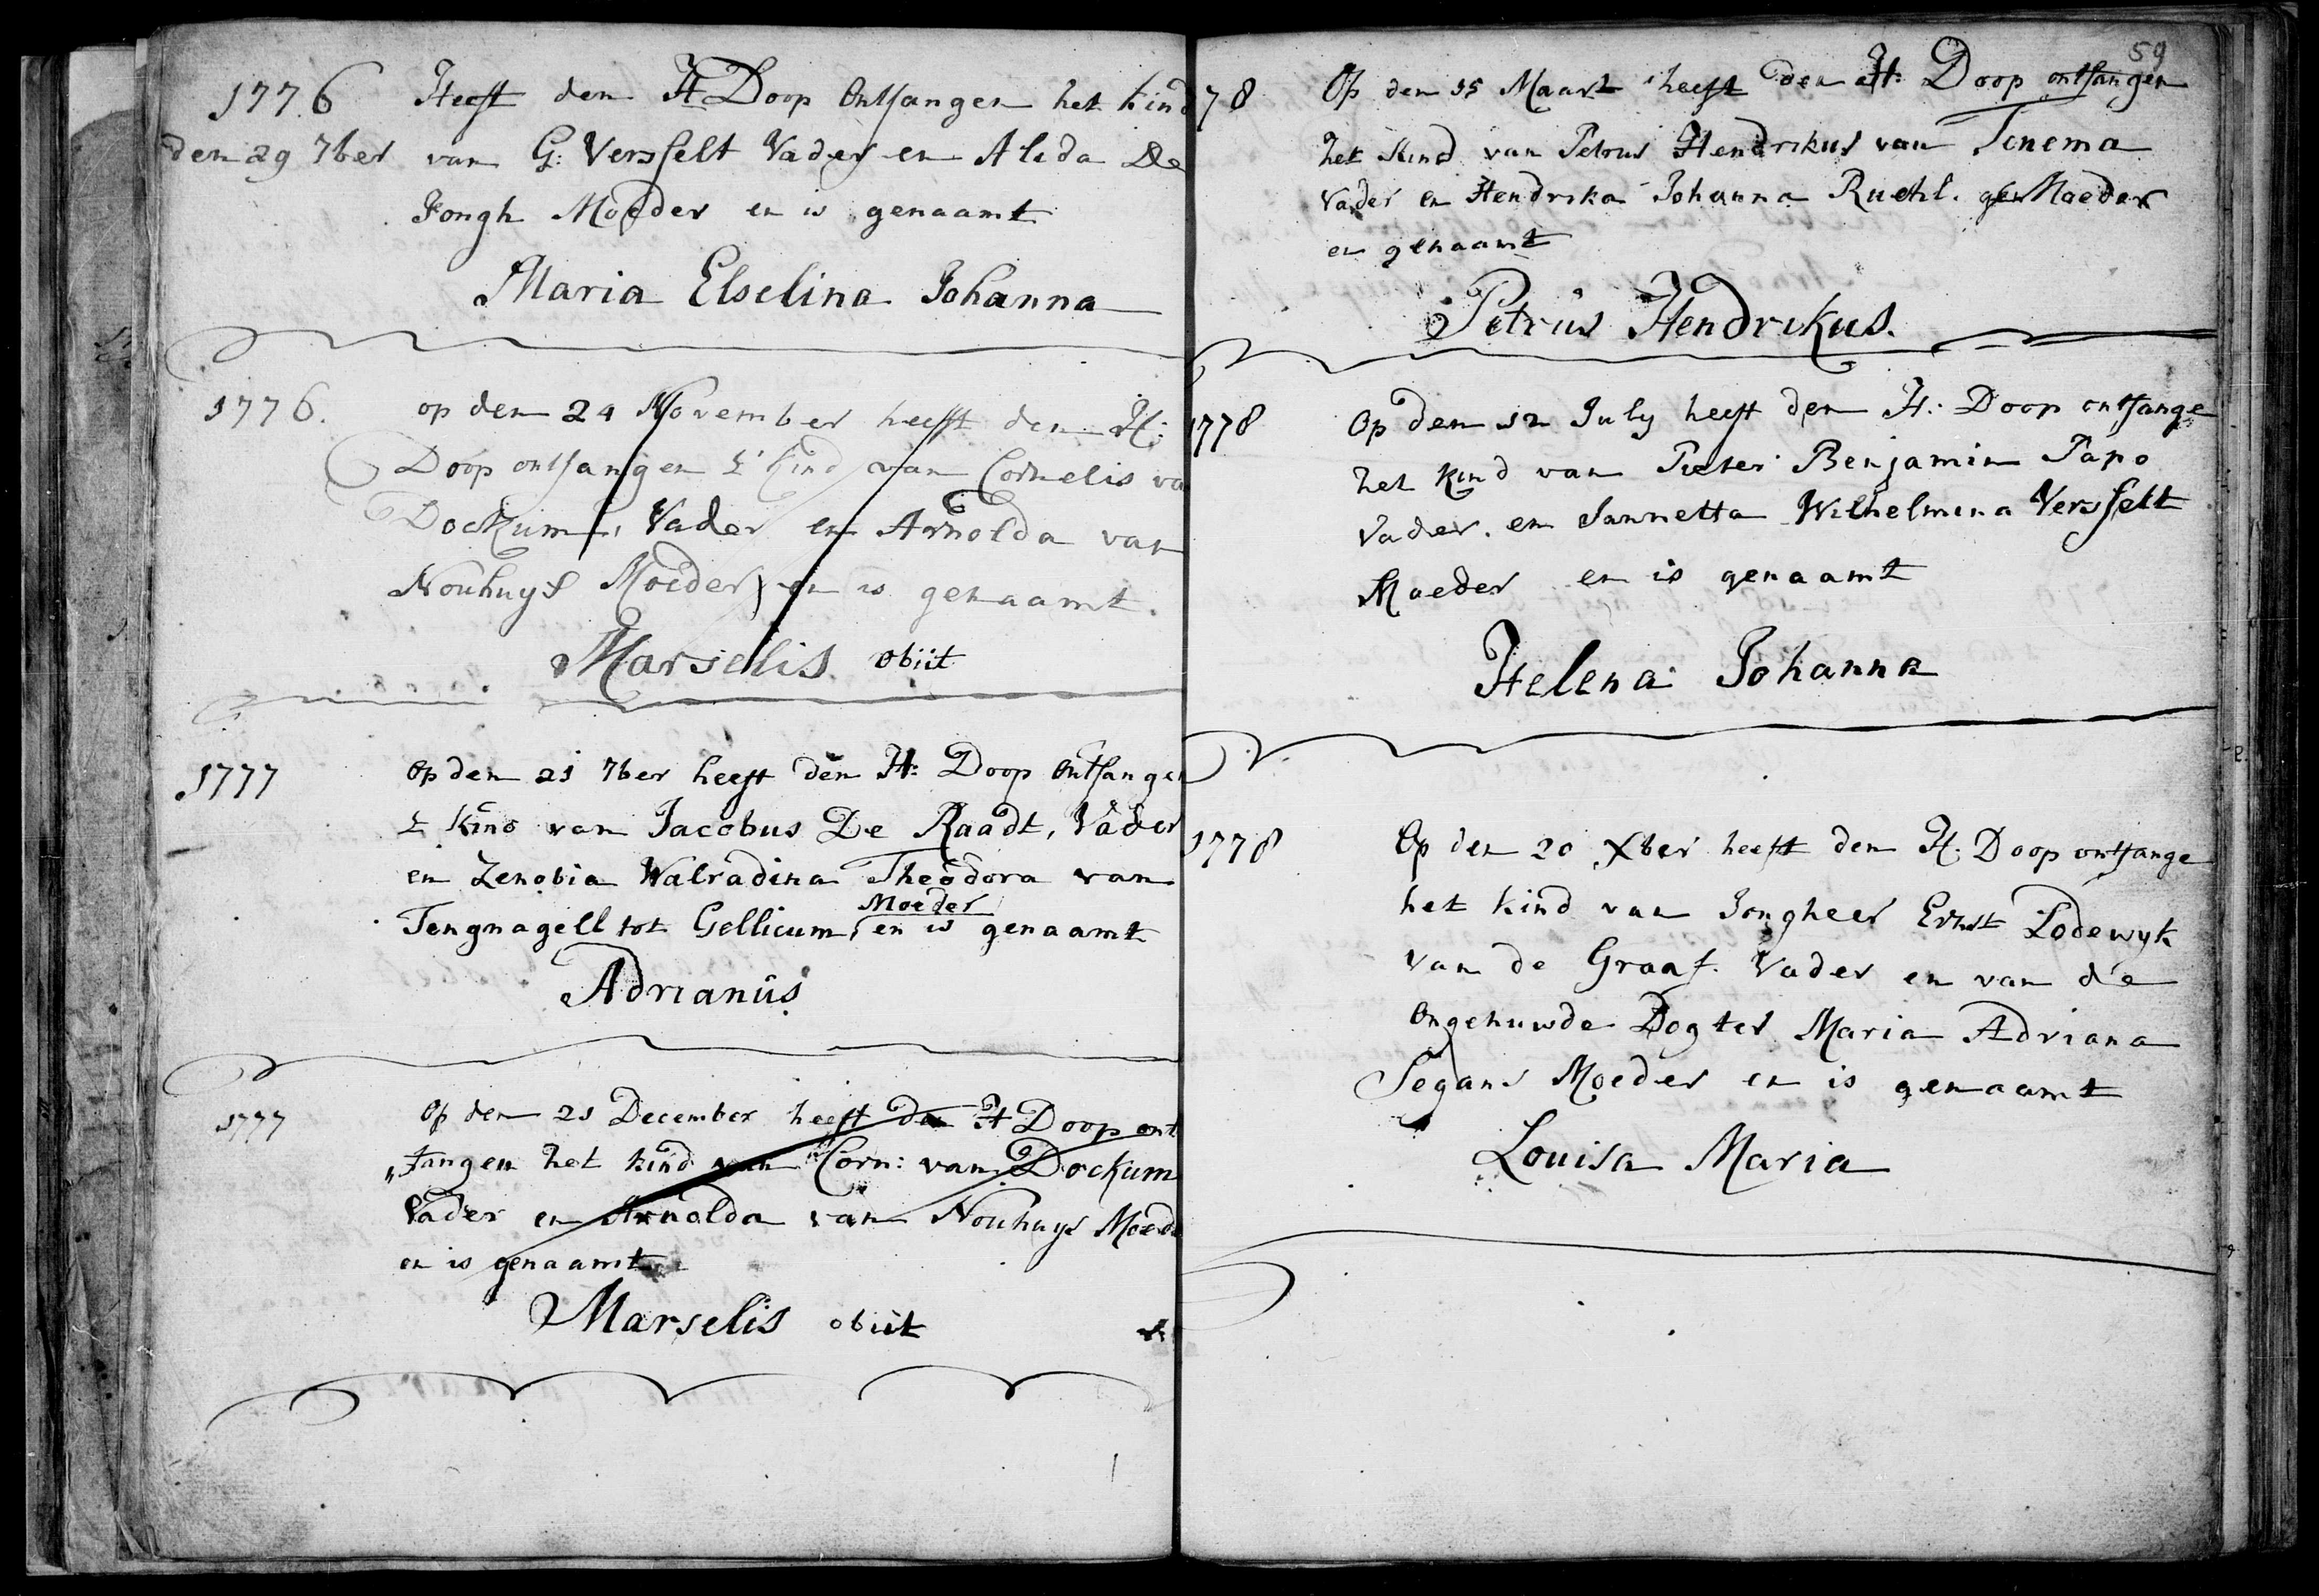 1776 Heeft den H Doop ontfangen het kind
den 29 7ber van G: Versfelt Vader en Aleda De
Jongh Moeder en is genaamt
Maria Elselina Johanna
1776. op den 24 November heeft den H:
Doop ontfangen t' kind van Cornelis va
Dockum, Vader en Arnolda van
Nouhuys Moeder en is genaamt.
Marselis. obiit
1777 op den 21 7ber heeft den H: Doop ontfangen
t kind van Jacobus De Raadt, Vader
en Zenobia Walradina Theodora van
Moeder
Tengnagell tot Gellicum, en is genaamt
Adrianus
1777 op den 21 December heeft den H Doop ont
„fangen het kind van Corn: van Dockum
Vader en Arnolda van Nouhuys Moeder
en is genaamt
Marselis obiit
59
78 Op den 15 Maart heeft den H: Doop ontfangen
het kind van Petrus Hendrikus van Tenema
Vader en Hendrika Johanna Ruchl. Moeder
en genaamt
Petrus Hendrikus.
1778 Op den 12 July heeft den H: Doop ontfange
het kind van Pieter Benjamin Papo
Vader. en Jannetta Wilhelmina Versfelt
Moeder en is genaamt
Helena Johanna
1778 Op den 20 Xber heeft den H. Doop ontfange
het kind van Jongheer Ernst Lodewyk
van de Graaf. Vader en van de
ongehuwde Dogter Maria Adriana
Segans Moeder en is genaamt
Louisa Maria